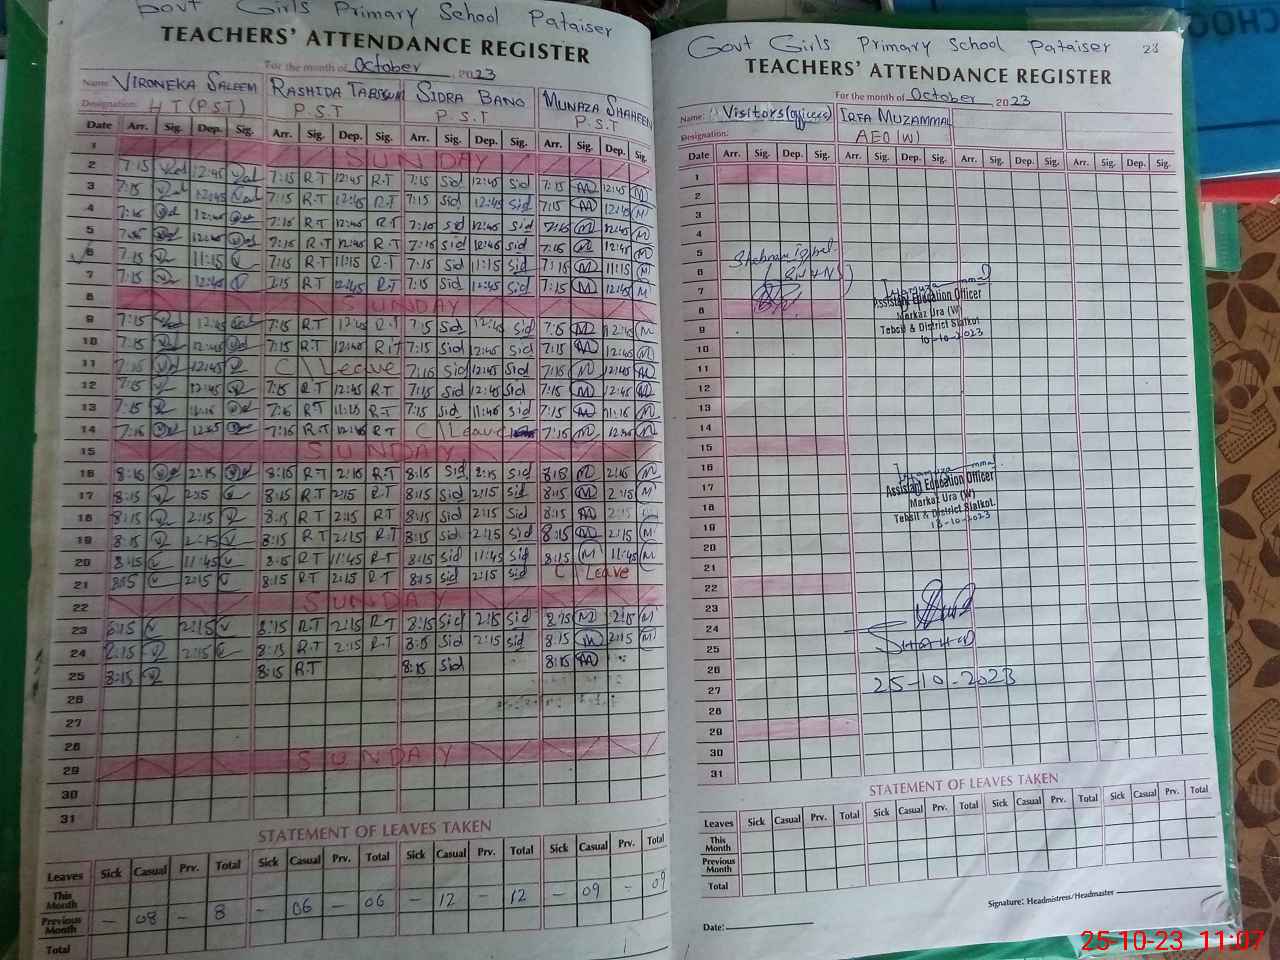 Govt Girls Primary School Pataiser
TEACHERS' ATTENDANCE REGISTER
For the month of October 2023
Name: VIRONEKA SALEEM RASHIDA TABSSUM SIDRA BANO MUNAZA SHAHEEN
Designation: H T (P S T) P S T P S T P S T
Date Arr. Sig. Dep. Sig. Arr. Sig. Dep. Sig. Arr. Sig. Dep. Sig. Arr. Sig. Dep. Sig.
1 SUNDAY
2 7:15 12:45 7:15 R.T 12:45 R.T 7:15 Sid 12:45 Sid 7:15 M 12:45 M
3 7:15 12:45 7:15 R.T 12:45 R.T 7:15 Sid 12:45 Sid 7:15 M 12:45 M
4 7:16 12:46 7:16 R.T 12:46 R.T 7:16 Sid 12:46 Sid 7:16 M 12:46 M
5
6 7:15 11:15 7:15 R.T 11:15 R.T 7:15 Sid 11:15 Sid 7:15 M 11:15 M
7 7:15 12:45 7:15 R.T 12:45 R.T 7:15 Sid 12:45 Sid 7:15 M 12:45 M
8 SUNDAY
9 7:15 12:45 7:15 R.T 12:45 R.T 7:15 Sid 12:45 Sid 7:15 M 12:45 M
10 7:15 7:15 R.T R.T 7:15 Sid Sid 7:15 M M
11 C/Leave Sid 12:45 Sid M M
12 7:15 12:45 7:15 R.T 12:45 R.T 7:15 Sid 12:45 Sid 7:15 M 12:45 M
13 7:15 R T R T 7:15 Sid Sid 7:15 M M
14 7:16 R T R T C/Leave 7:16 M M
15 SUNDAY
16 8:15 2:15 8:15 R T 2:15 R T 8:15 Sid 2:15 Sid 8:15 M M
17 8:15 2:15 8:15 R T 2:15 R.T 8:15 Sid 2:15 Sid 8:15 M 2:15 M
18 8:15 2:15 8:15 R T 2:15 R T 8:15 Sid 2:15 Sid 8:15 M 2:15
19 8:15 2:15 8:15 R T 2:15 R.T 8:15 Sid 2:15 Sid 8:15 M 2:15 M
20 8:15 11:45 8:15 R T 11:45 R.T 8:15 Sid 11:45 Sid 8:15 M 11:45 M
21 8:15 2:15 8:15 R T 2:15 R T 8:15 Sid 2:15 Sid C/Leave
22 SUNDAY
23 8:15 2:15 8:15 R.T 2:15 R.T 8:15 Sid 2:15 Sid 8:15 M 2:15 M
24 8:15 2:15 8:15 R.T 2:15 R.T 8:15 Sid 2:15 Sid 8:15 M 2:15 M
25 8:15 8:15 R.T 8:15 Sid 8:15 M
26
27
28
29 SUNDAY
30
31
STATEMENT OF LEAVES TAKEN
Leaves Sick Casual Prv. Total Sick Casual Prv. Total Sick Casual Prv. Total Sick Casual Prv. Total
This Month
Previous Month – 08 – 8 – 06 – 06 – 12 – 12 – 09 – 09
Total
Govt Girls Primary School Pataiser 23
TEACHERS' ATTENDANCE REGISTER
For the month of October 2023
Name: Visitors (officers) IRFA MUZAMMAL
Designation: AEO (W)
Date Arr. Sig. Dep. Sig. Arr. Sig. Dep. Sig. Arr. Sig. Dep. Sig. Arr. Sig. Dep. Sig.
1
2
3
4
5
6
7
8
9
10
11
12
13
14
15
16
17
18
19
20
21
22
23
24
25
26
27
28
29
30
31
Assistant Education Officer
Markaz Ura (W)
Tehsil & District Sialkot
10-10-2023
Assistant Education Officer
Markaz Ura (W)
Tehsil & District Sialkot.
25-10-2023
STATEMENT OF LEAVES TAKEN
Leaves Sick Casual Prv. Total Sick Casual Prv. Total Sick Casual Prv. Total Sick Casual Prv. Total
This Month
Previous Month
Total
Signature: Headmistress/Headmaster
Date:
25-10-23 11:07